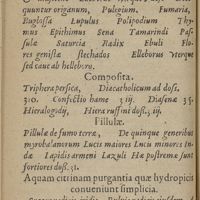 quuntur origanum, Pulegium, Fumaria,
Buglossa Lupulus Polipodium Thy-
mus Epithimus Sena Tamarindi Pas-
sulæ Saturcia Radix Ebuli Flo-
res genistæ stechados Elleborus vterque
sed caue ab helleboro.
Composita.
Triphera persica, Diacatholicum ad dos.
310. Confectio hame 3 iij Diasenæ 35.
Hieralogidij, Hiera ruffini dos. 3, iij.
Pillulæ.
Pillulæ de fumo terræ, De quinque generibus
myrobalanorum Lucis maiores Lucis minores In-
dæ Lapidis armeni Lazuli Hæ postremæ sunt
fortiores dos. 31.
Aquam citrinam purgantia quæ hydropicis
conueniunt simplicia.